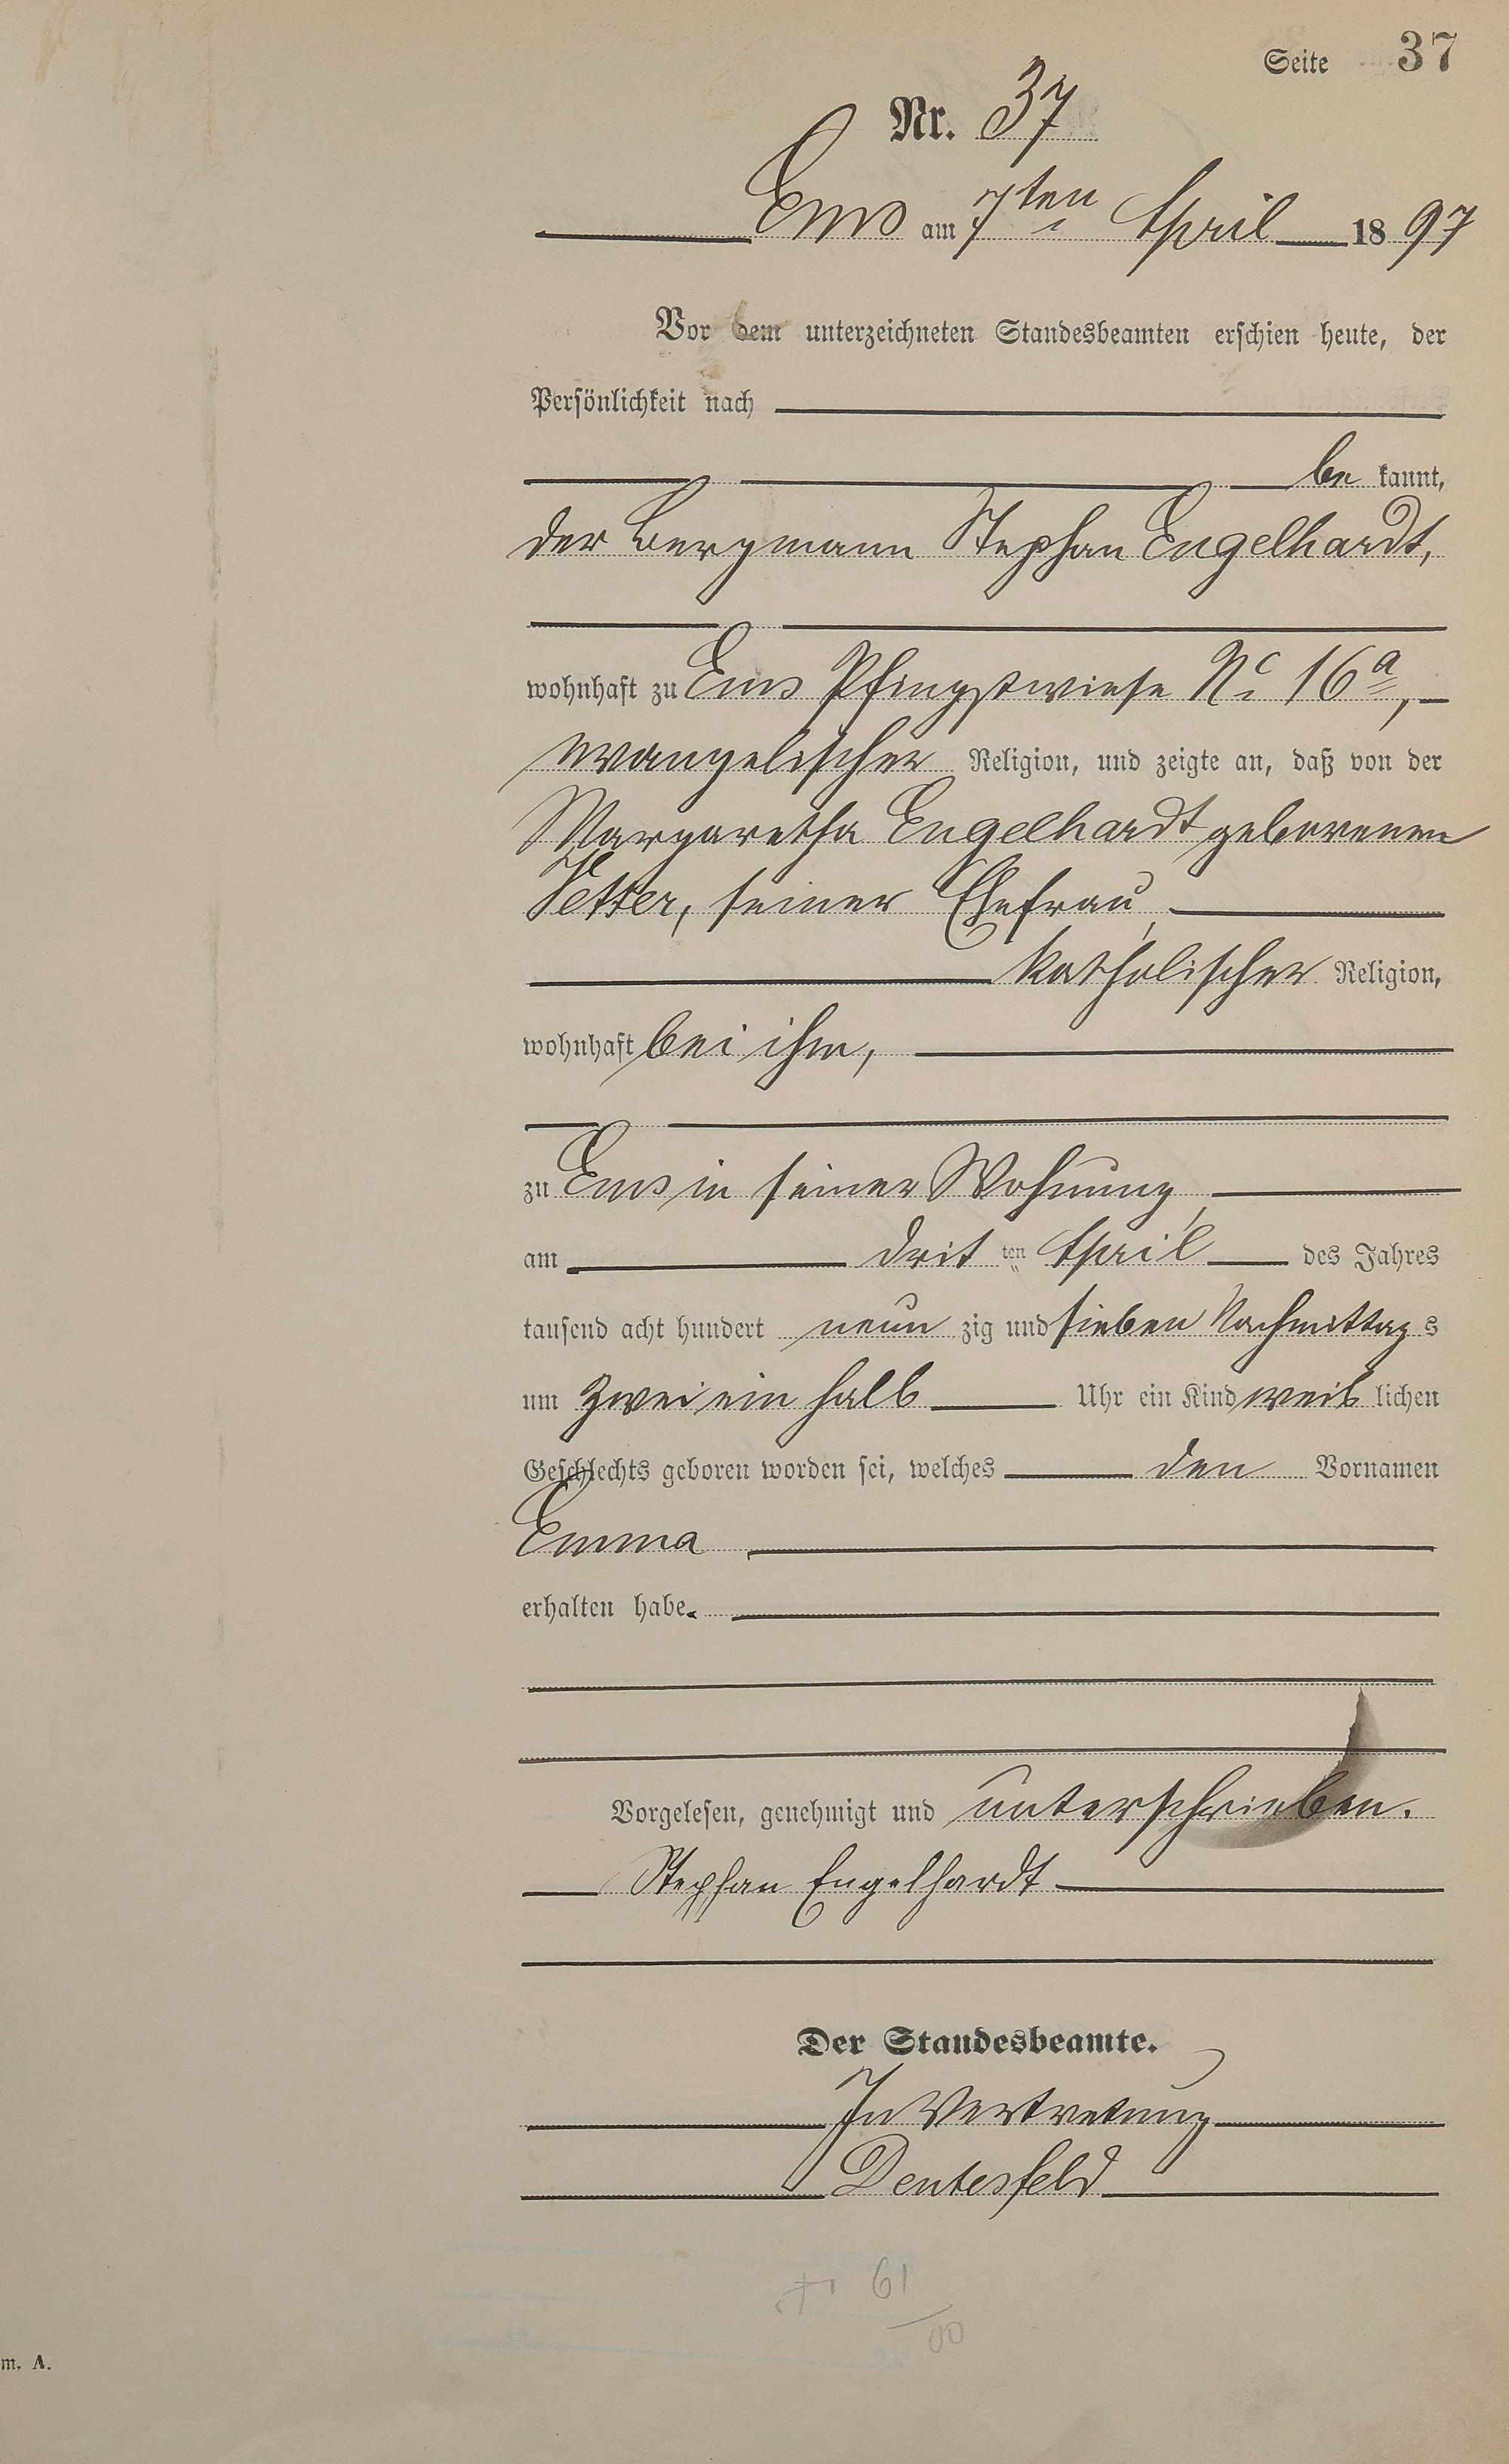 Seite 37
Nr. 37
Ems am 7ten April 1897
Vor dem unterzeichneten Standesbeamten erschien heute, der
Persönlichkeit nach
be kannt,
der Bergmann Stephan Engelhardt,
wohnhaft zu Ems Pfingstwiese No 16a,
evangelischer Religion, und zeigte an, daß von der
Margaretha Engelhardt geborenen
Vetter, seiner Ehefrau,
katholischer Religion,
wohnhaft bei ihm,
zu Ems in seiner Wohnung,
am dritten April des Jahres
tausend acht hundert neunzig und sieben Nachmittags
um zwei ein halb Uhr ein Kind weiblichen
Geschlechts geboren worden sei, welches den Vornamen
Emma
erhalten habe.
Vorgelesen, genehmigt und unterschrieben.
Stephan Engelhardt
Der Standesbeamte.
In Vertretung
m. A.